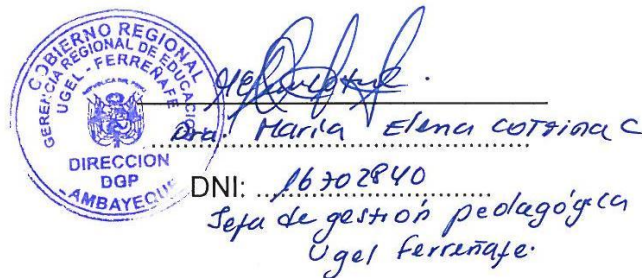 GOBIERNO REGIONAL
GERENCIA REGIONAL DE EDUCACION
UGEL - FERREÑAFE
REPUBLICA DEL PERU
DIRECCION
DGP
LAMBAYEQUE
Dra. Maria Elena C
DNI: 16702840
Jefa de gestión pedagógica
Ugel Ferreñafe.